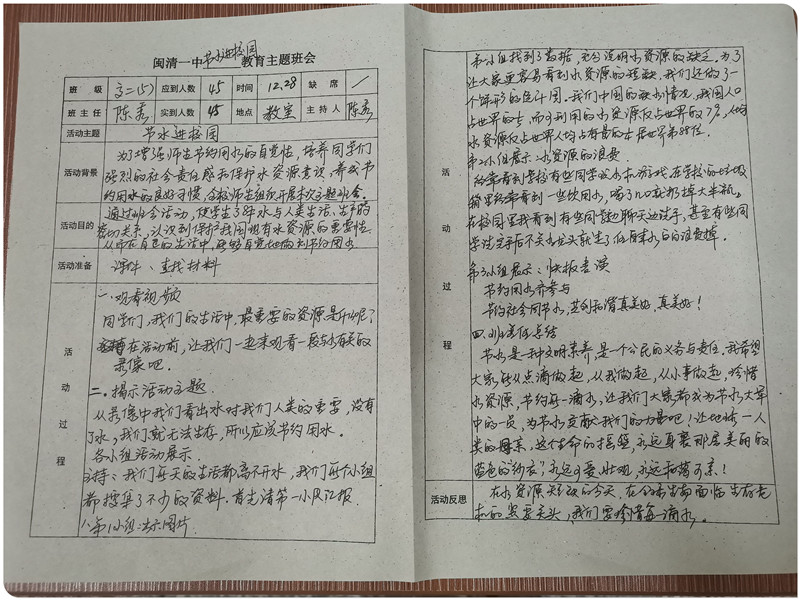 闽清一中节水进校园教育主题班会
班级 高二(5) 应到人数 45 时间 12.28 缺席 /
班主任 陈 实到人数 45 地点 教室 主持人 陈
活动主题 节水进校园
活动背景 为了增强师生节约用水的自觉性，培养同学们
强烈的社会责任感和保护水资源意识，养成节
约用水的良好习惯，全校师生组织开展本次主题班会。
活动目的 通过班会活动，使学生了解水与人类生活、生产的
密切关系，认识到保护我国现有水资源的重要性
从而在自己的生活中，能够自觉地做到节约用水
活动准备 课件、查找材料
活动过程
一、观看视频
同学们，我们的生活中，最重要的资源是什么呢？
在活动前，让我们一起来观看一段与水有关的
录像吧．
二、揭示活动主题
从录像中我们看出水对我们人类的重要，没有
了水，我们就无法生存，所以应该节约用水．
各小组活动展示
主持：我们每天的生活都离不开水，我们每个小组
都搜集了不少的资料．首先请第一小组汇报
1、第1小组：出示图片
第小组找到了数据，充分说明水资源的缺乏，为了
让大家更容易看到水资源的现缺，我们还做了一
个饼形的统计图．我们中国的缺水情况，我国人口
占世界的 而可利用的水资源仅占世界的7%，人均
水资源仅占世界人均占有量的 居世界第88位．
第2小组展示：水资源的浪费
经常看到学校有些同学或水 游戏，在学校的垃圾
箱里经常看到一些饮用水，喝了几口就扔掉大半瓶．
在校园里我看到有些同学边聊天边洗手，甚至有些同
学洗完手后不关水龙头就走了 白白的浪费掉．
活动过程
第3小组展示：快板表演
节约用水齐参与
节约社会同节水，共创和谐真美好，真美好！
四、班主任总结
节水是一种文明素养，是一个公民的义务与责任．我希望
大家能从点滴做起，从我做起，从小事做起，珍惜
水资源，节约每一滴水，让我们大家都成为节水大军
中的一员，为节水贡献我们的力量吧！让地球一人
类的母亲，这个生命的摇篮，永远身裹那层美丽的
蓝色的纱衣，永远可爱、壮观，永远和蔼可亲！
活动反思 在水资源短缺的今天，在 面临生存危
机的紧要关头，我们要珍惜每一滴水．